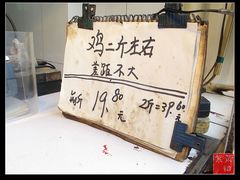 鸡二斤左右
差距不大
每斤 19.80元 2斤=39.60元